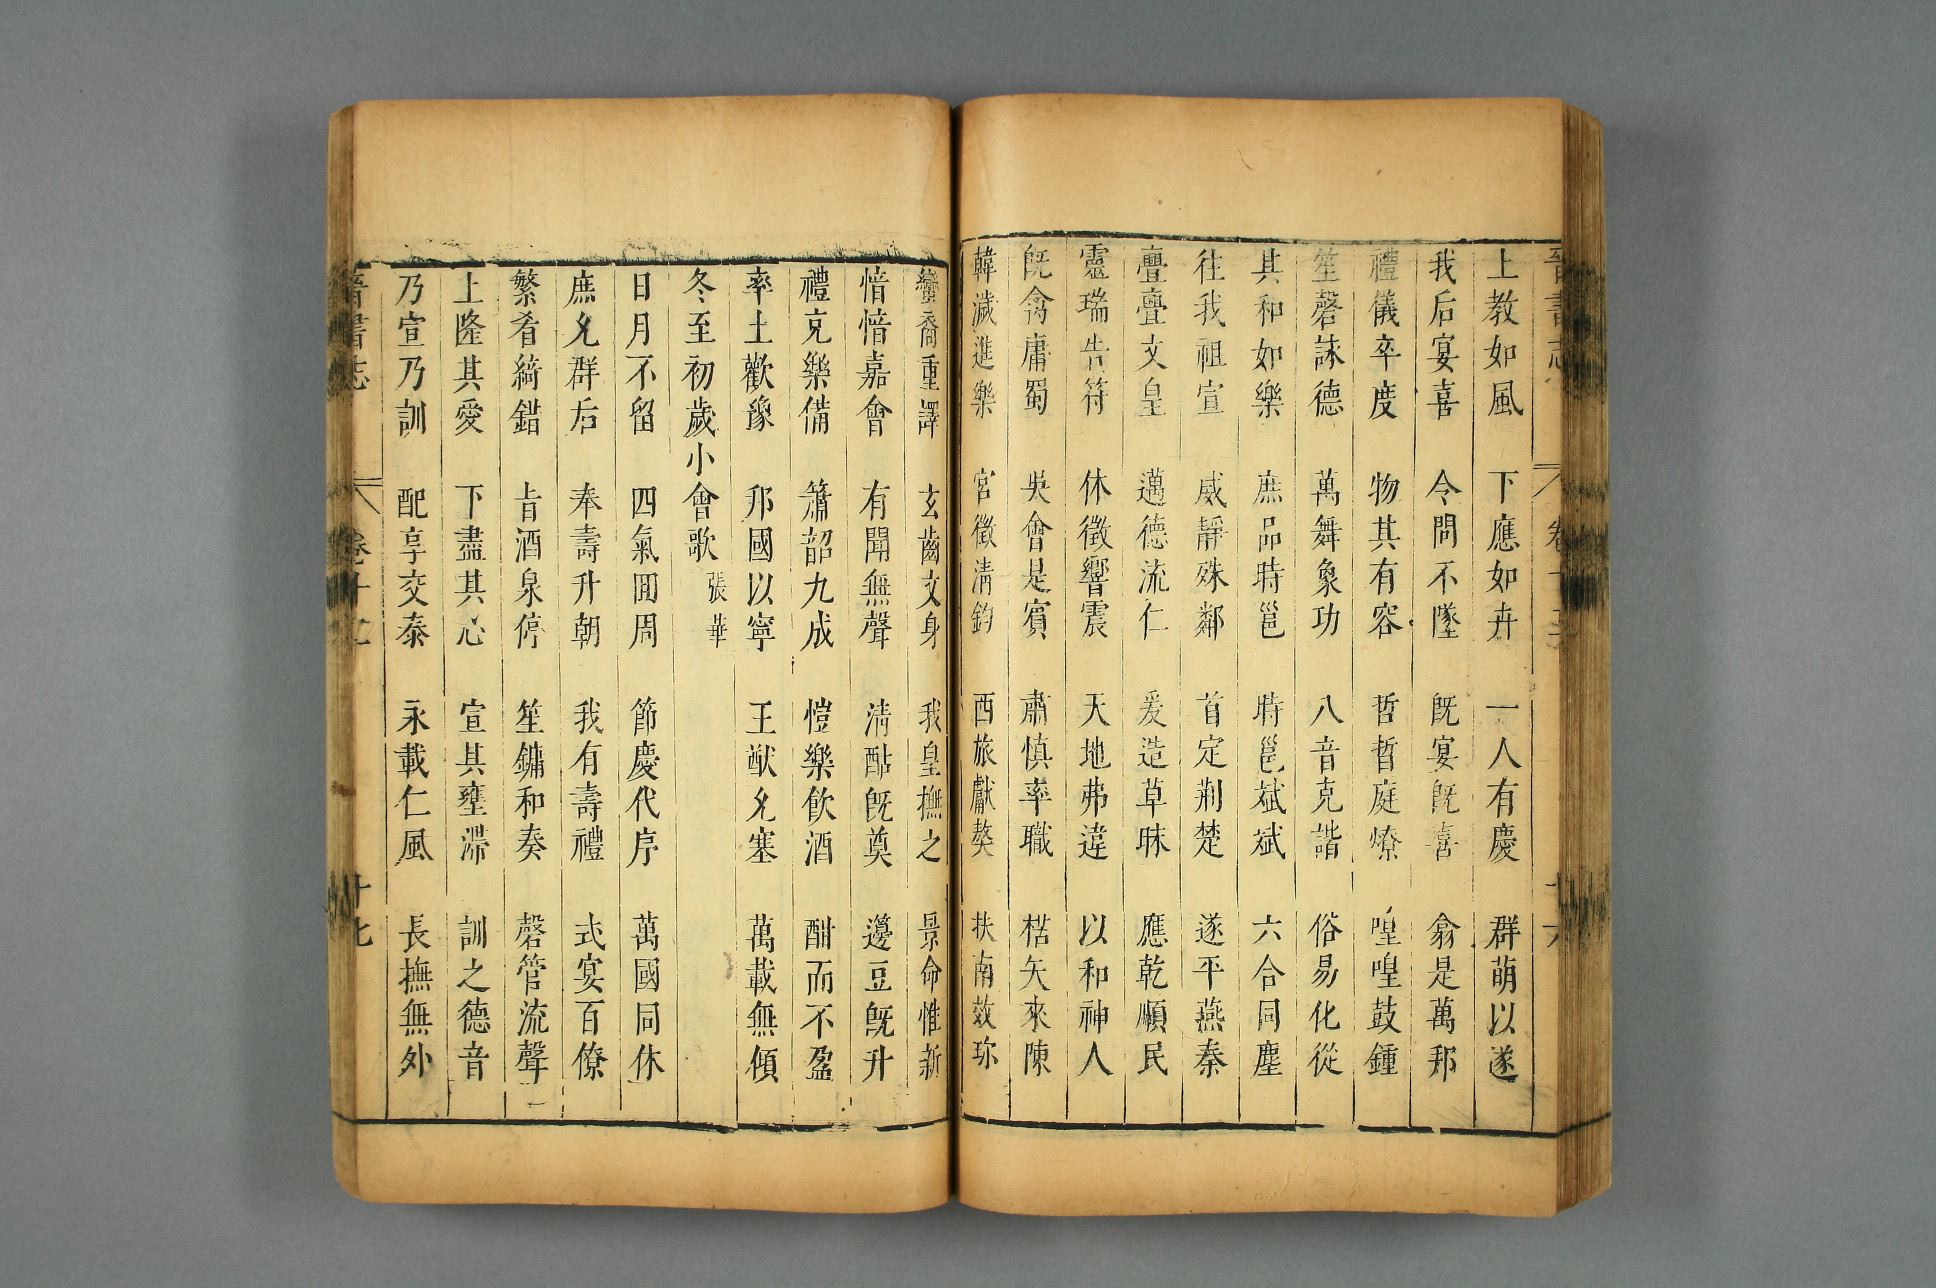 晉書志 卷十二 十六
上教如風 下應如卉 一人有慶 群萌以遂
我后宴喜 令問不墜 旣宴旣喜 翕是萬邦
禮儀卒度 物其有容 晢晢庭燎 喤喤鼓鍾
笙磬詠德 萬舞象功 八音克諧 俗易化從
其和如樂 庶品時邕 時邕斌斌 六合同塵
往我祖宣 威靜殊鄰 首定荆楚 遂平燕秦
亹亹文皇 邁德流仁 爰造草昧 應乾順民
靈瑞告符 休徵響震 天地弗違 以和神人
旣禽庸蜀 吳會是賓 肅慎率職 楛矢來陳
韓濊進樂 宮徵清鈞 西旅獻獒 扶南效珍
蠻裔重譯 玄齒文身 我皇撫之 景命惟新
愔愔嘉會 有聞無聲 清酤旣奠 籩豆旣升
禮克樂備 簫韶九成 愷樂飮酒 酣而不盈
率土歡豫 邦國以寧 王猷允塞 萬載無傾
冬至初歲小會歌 張華
日月不留 四氣囬周 節慶代序 萬國同休
庶允群后 奉壽升朝 我有壽禮 式宴百僚
繁肴綺錯 旨酒泉停 笙鏞和奏 磬管流聲
上隆其愛 下盡其心 宣其壅滯 訓之德音
乃宣乃訓 配享交泰 永載仁風 長撫無外
晉書志 卷十二 十七